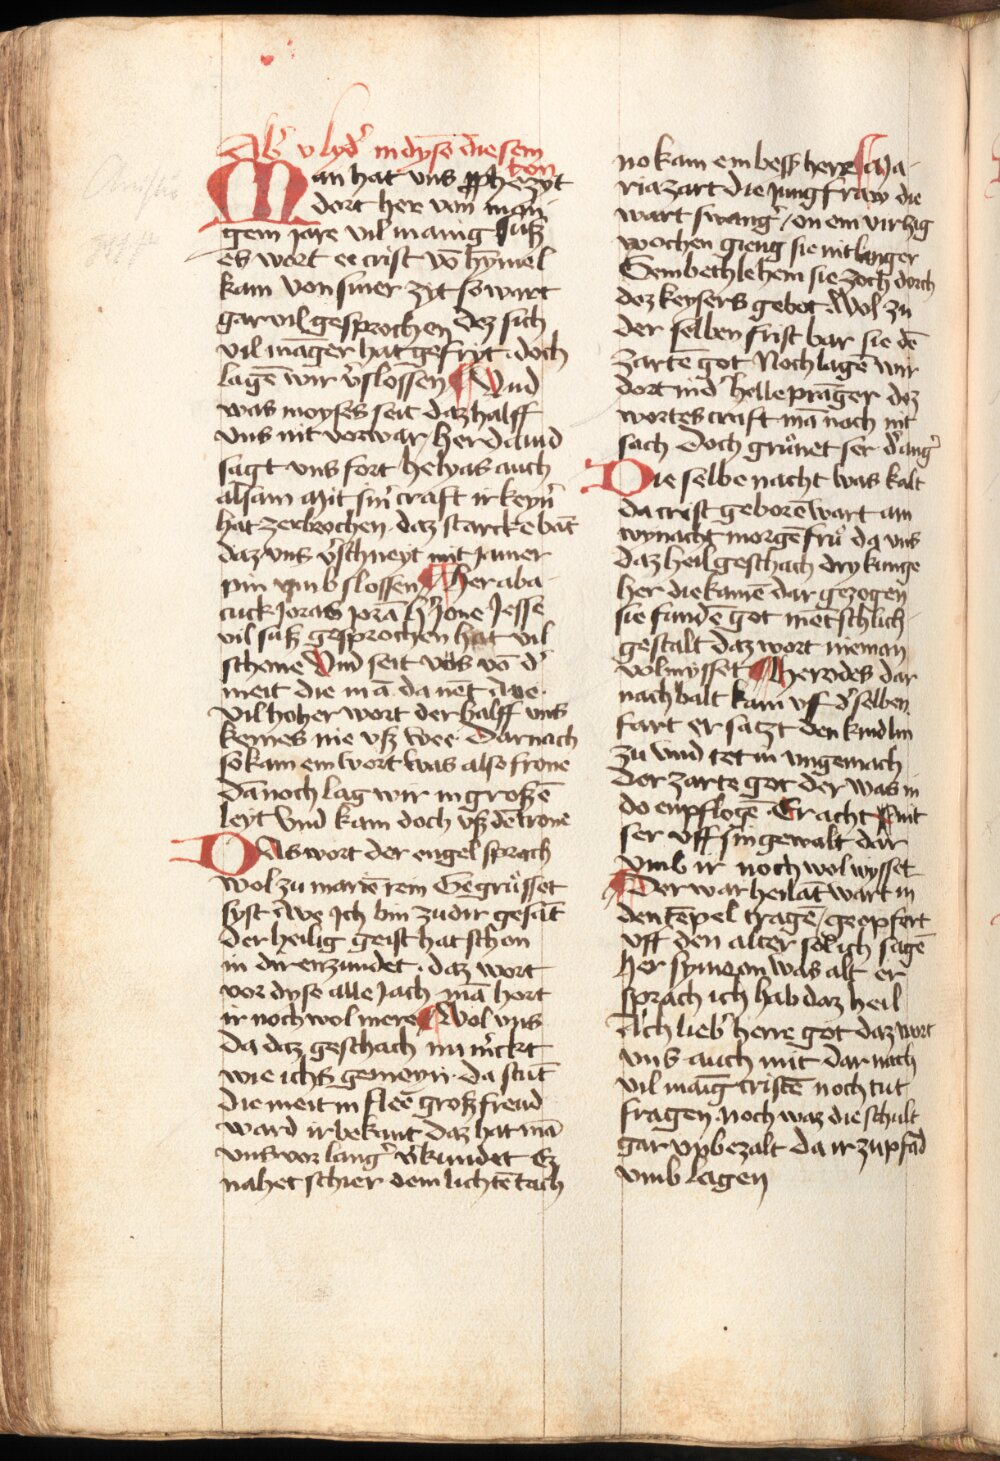 Ab' v lyd' in dyse̅ diesem
ton
Man hat vns ꝓphezyt
dort her von man
gem jare vil manig suß
es wort ee crist vo̅ hymel
kam von siner zyt so wart
gar vil gesprochen dez sich
vil ma̅ger hat gefryt. doch
lage̅ wir v'slossen Vnd
was moyses seit daz halff
vns nit vorwar / her dauid
sagt vns fort helyas auch
alsam Mit sin' craft ir keyn'
hat zerbrochen. daz starcke bat̅
daz vns v'schneyt mit jamer
pin vmb slossen Her aba
cuck Joras pra̅ h' Jone Jesse
vil suß gesprochen hat vil
schone Vnd seit vns vo̅ d'
meit die ma̅ da ne̅t Aue.
vil hoher wort der halff vns
keines nie vß wee. Darnach
so kam ein wort was also frone
da̅noch lag wir in große̅
leyt Vnd kam doch vß de̅ trone
Das wort der engel sprach
wol zu marie̅ rein Gegrüsset
syst Awe Ich bin zu dir gesa̅t
der heilig geist hat schon
in dir enzundet. daz wort
vor dyse alle Jach ma̅ hort
ir noch wol mere Wol vns
da daz geschach nu m'ckt
wie ichs gemeyn. da stu̅t
die meit in flee̅ groß freud
ward ir bekant daz hat ma̅
vns vor lang' v'kundet Ez
nahet schier dem lichte̅ tach
no kam ein besß herre Ma
ria zart die jungfraw die
wart swang' / on ein virtzig
wochen gieng sie nit langer
Gein bethlehem sie zoch dorch
dez keysers gebot. Wol zu
der selben frist bar sie de̅
zarte̅ got Noch lage̅ wir
dort in d' helle pra̅ger dez
wortes craft ma̅ noch nit
sach doch grünet ser d' ang'
Die selbe nacht was kalt
da crist gebore̅ wart am
wynacht morge̅ frü da vns
daz heil geschach dry kunge
her die kame̅ dar gezogen
sie funde̅ got me̅tschlich
gestalt daz wort nieman
vol wysset Herodes dar
nach balt kam vf d' selben
fart er satzt den kindlin
zu vnd tet in vngemach
Der zarte got der was in
do enpfloge̅ Er acht nit
ser vff sin gewalt dar
vmb ir noch wol wysset
Der war heila̅t wart in
den te̅pel trage̅ / geopfert
vff den alter sol ich sage̅
her symeon was alt er
sprach ich hab daz heil
Ach lieb' herre got daz wort
vns auch mit dar nach
vil ma̅ig criste̅ noch tut
fragen. Noch waz die schult
gar vnbezalt da ir zu pfa̅d
vmb lagen